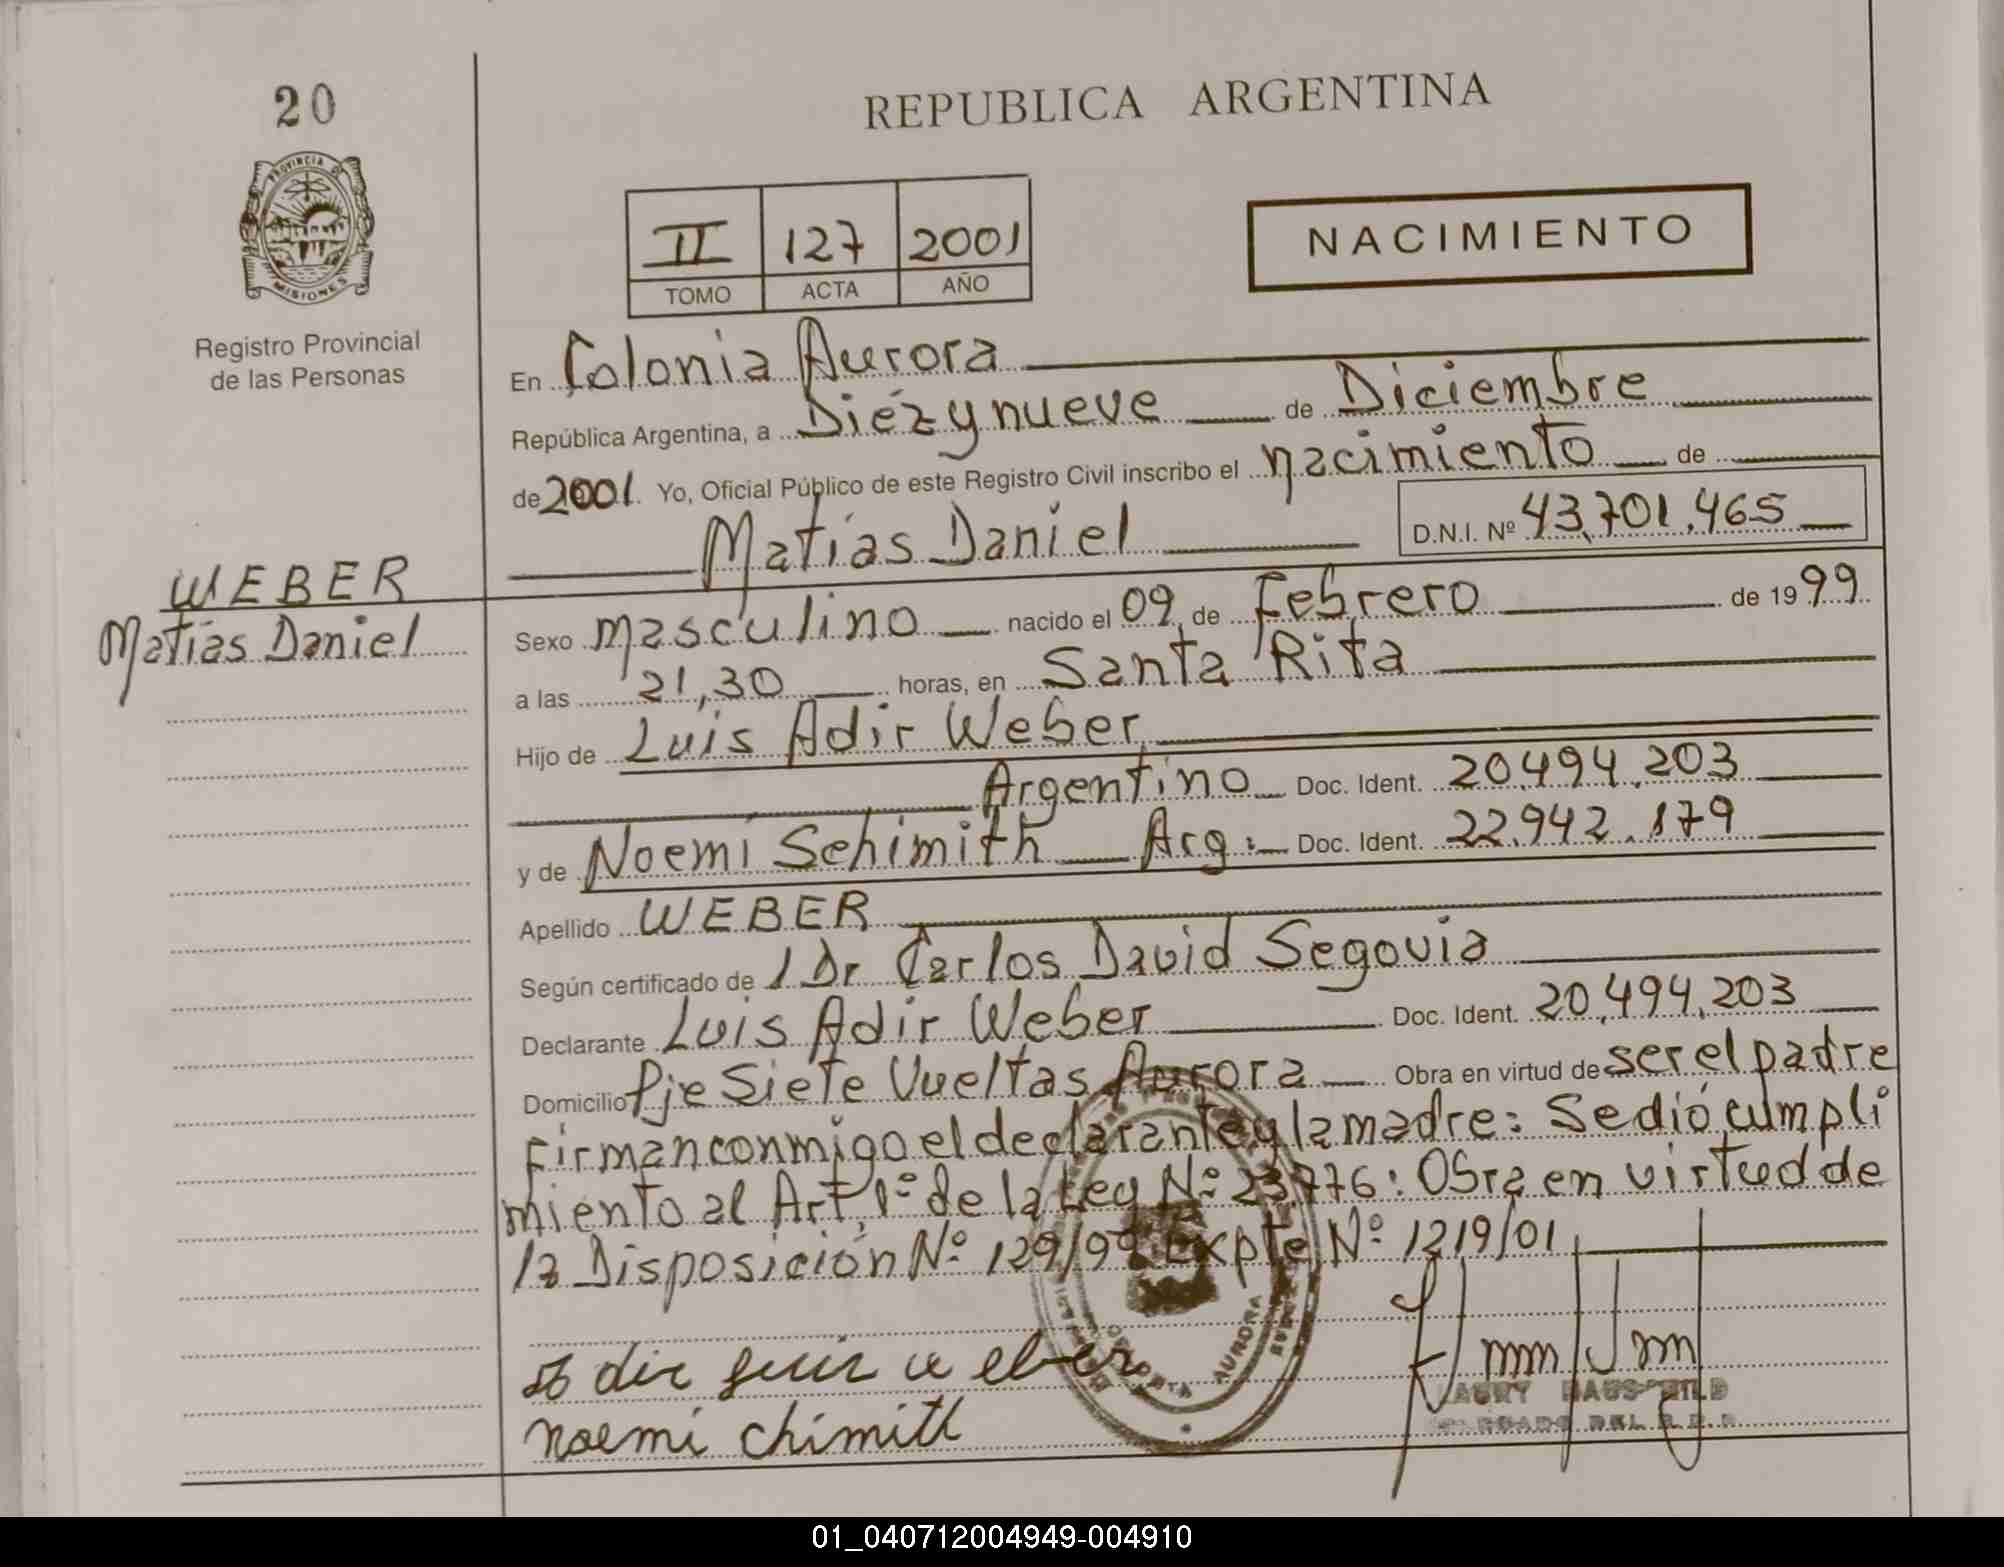 20
REPUBLICA ARGENTINA
PROVINCIA DE
MISIONES
Registro Provincial
de las Personas
II 127 2001
TOMO ACTA AÑO
NACIMIENTO
En Colonia Aurora
República Argentina, a Diéz y nueve de Diciembre
de 2001. Yo, Oficial Público de este Registro Civil inscribo el nacimiento de
Matías Daniel D.N.I. Nº 43.701.465
WEBER
Matías Daniel
Sexo masculino nacido el 09 de Febrero de 1999
a las 21,30 horas, en Santa Rita
Hijo de Luis Adir Weber
Argentino Doc. Ident. 20.494.203
y de Noemí Sehimith Arg: Doc. Ident. 22.942.179
Apellido WEBER
Según certificado de 1 Dr Carlos David Segovia
Declarante Luis Adir Weber Doc. Ident. 20.494.203
Domicilio Pje Siete Vueltas Aurora Obra en virtud de ser el padre
Firman conmigo el declarante y la madre: Se dió cumpli
miento al Art. 1º de la Ley Nº 23.776: Obra en virtud de
la Disposición Nº 129/99 Expte Nº 1219/01
weber
noemi chimith
AURORA
DEL R.P.P.
01_040712004949-004910